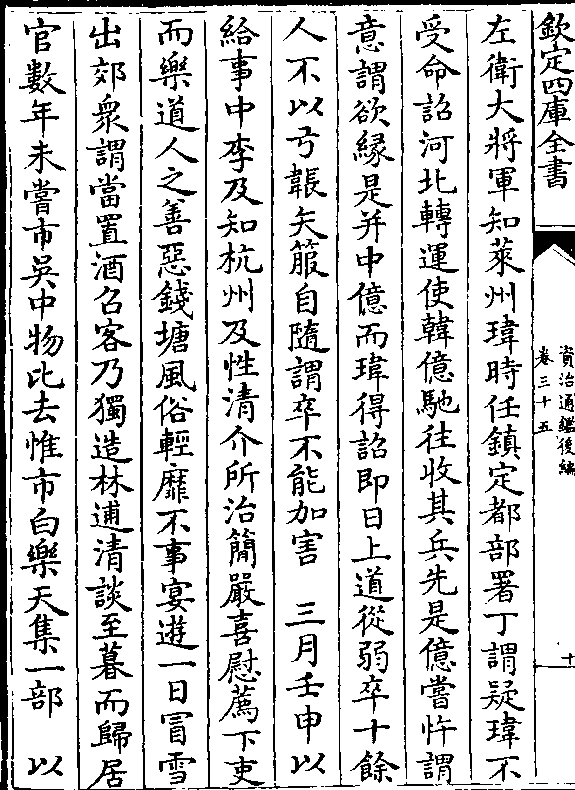 欽定四庫全書
資治通鑑後編
卷三十五
十
左衛大將軍知萊州瑋時任鎮定都部署丁謂疑瑋不
受命詔河北轉運使韓億馳往收其兵先是億嘗忤謂
意謂欲緣是并中億而瑋得詔即日上道從弱卒十餘
人不以弓韔矢箙自隨謂卒不能加害　三月壬申以
給事中李及知杭州及性清介所治簡嚴喜慰薦下吏
而樂道人之善惡錢塘風俗輕靡不事宴遊一日冒雪
出郊衆謂當置酒召客乃獨造林逋清談至暮而歸居
官數年未嘗市吳中物比去惟市白樂天集一部　以